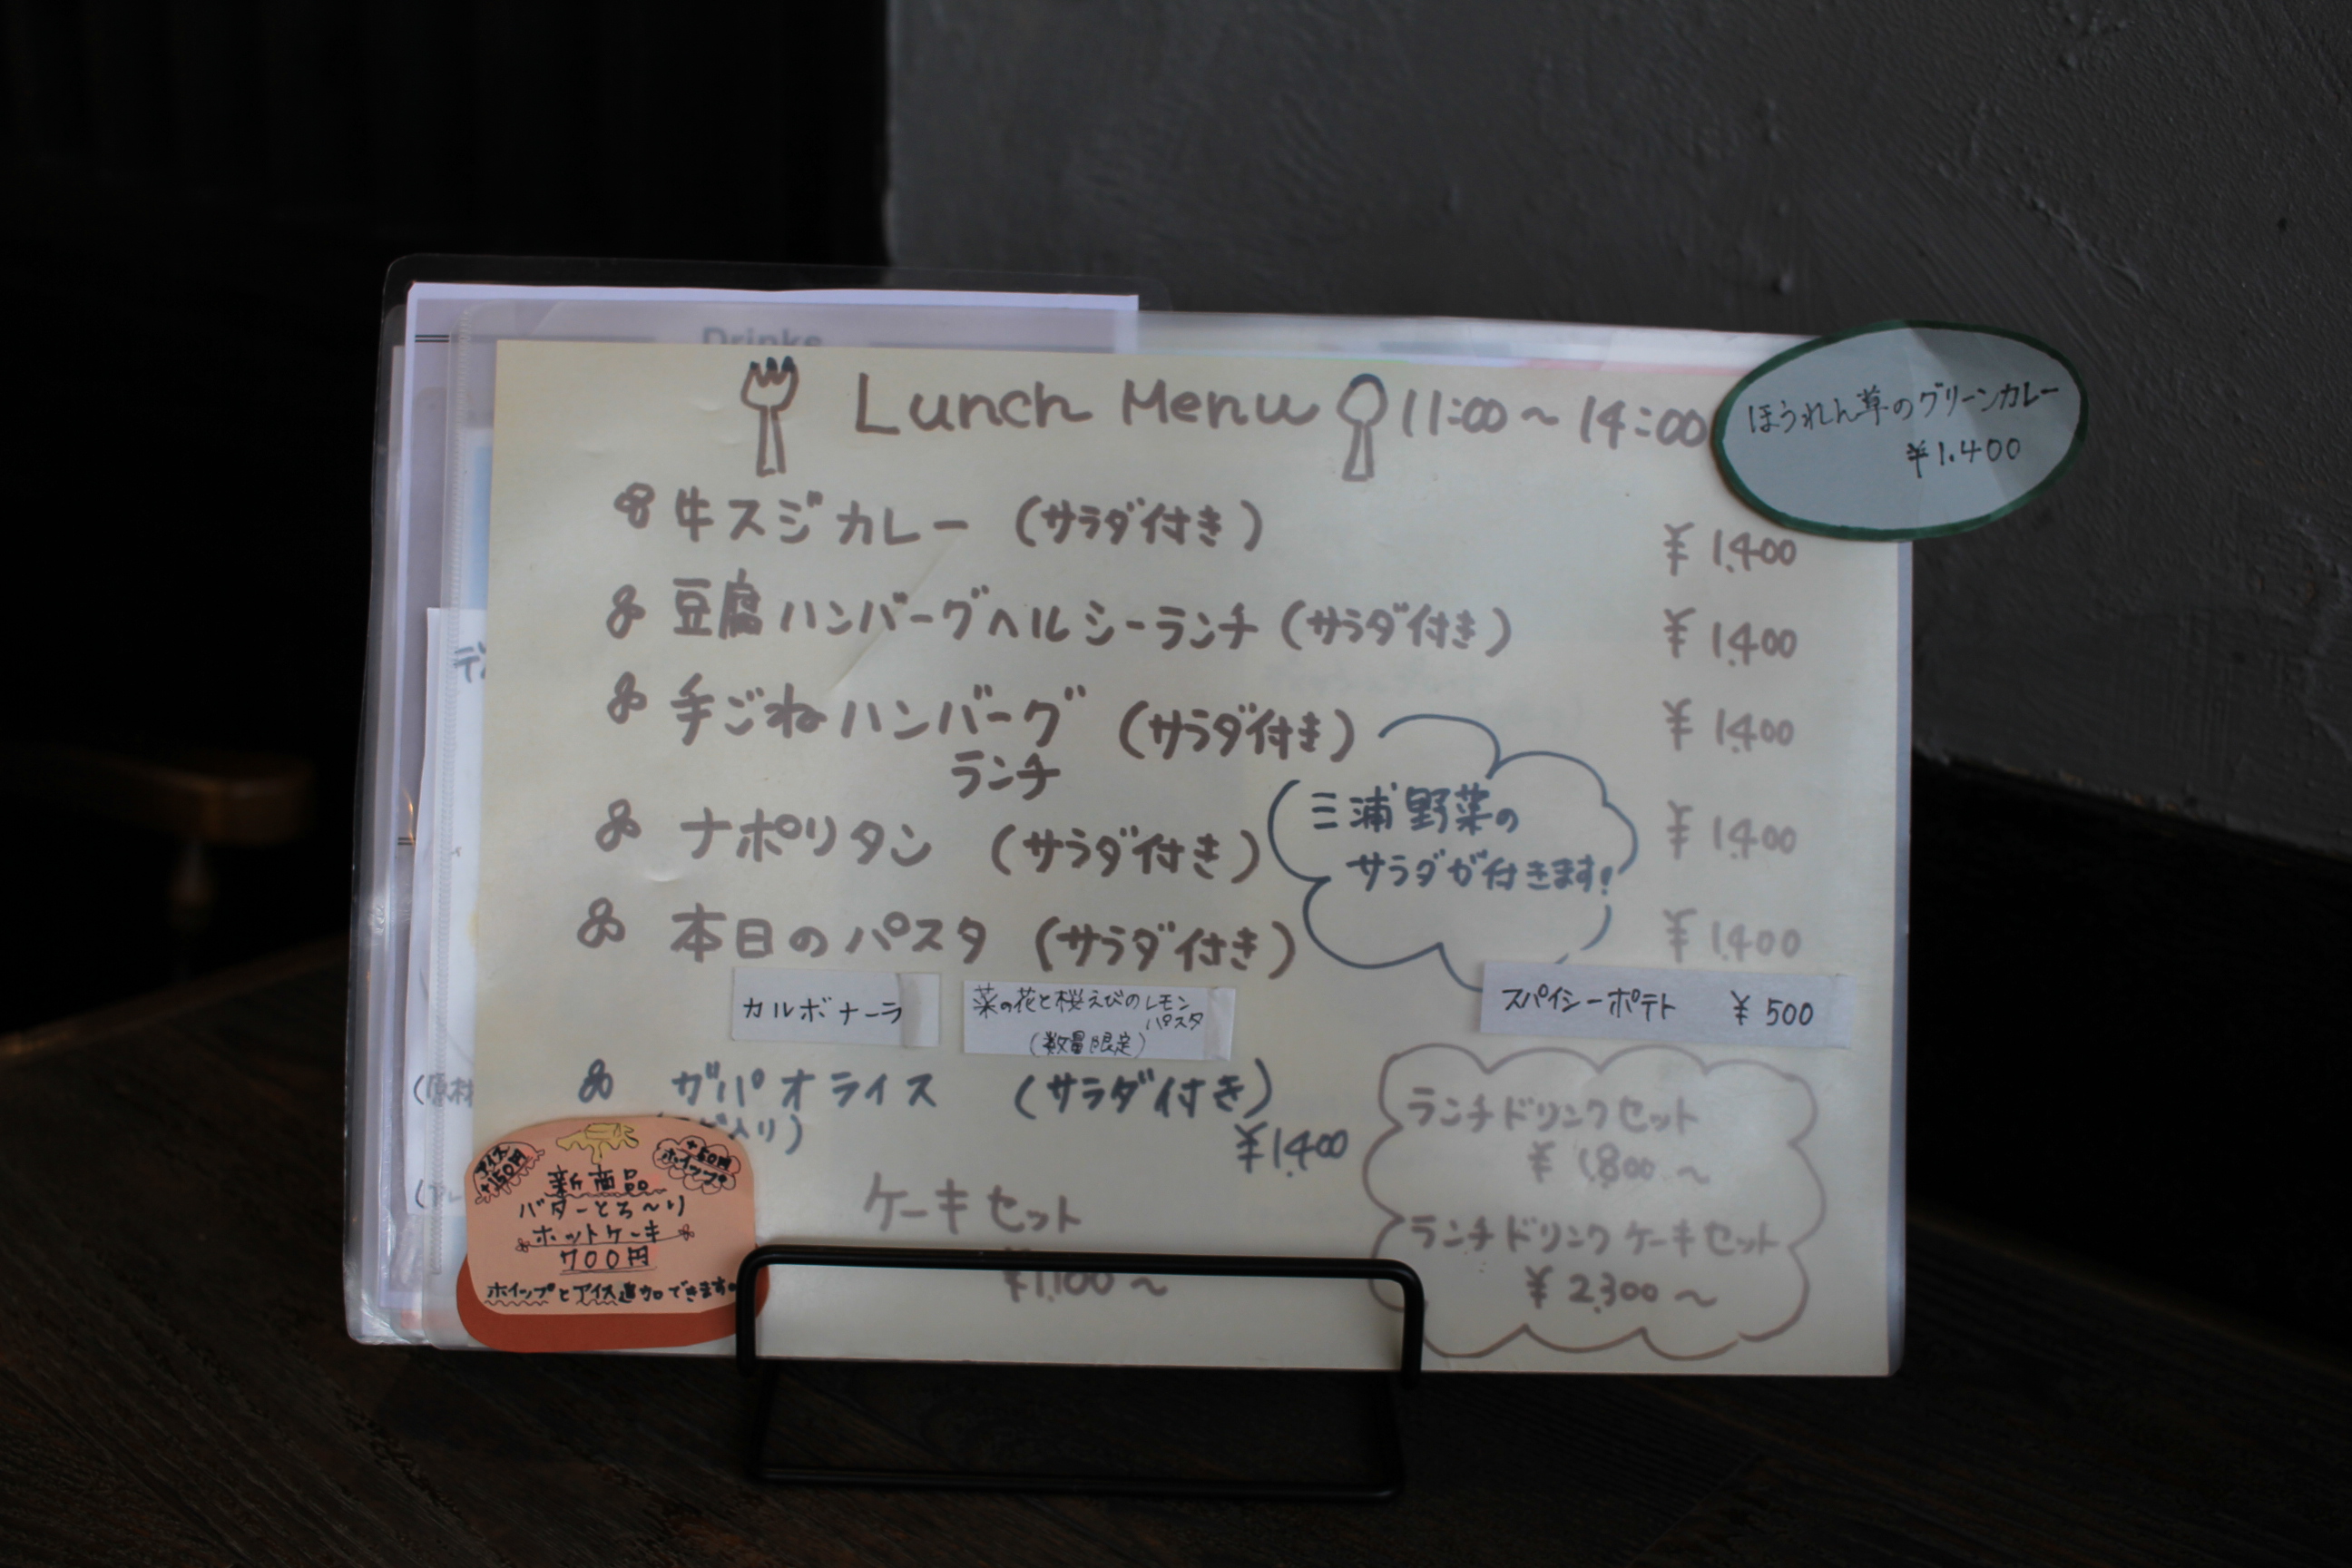 Drinks
Lunch Menu 11:00～14:00
ほうれん草のグリーンカレー
¥1.400
牛スジカレー (サラダ付き) ¥1.400
豆腐ハンバーグヘルシーランチ (サラダ付き) ¥1.400
手ごねハンバーグ (サラダ付き) ¥1.400
ランチ
三浦野菜の
サラダが付きます!
ナポリタン (サラダ付き) ¥1.400
本日のパスタ (サラダ付き) ¥1.400
カルボナーラ
菜の花と桜えびのレモン
パスタ
(数量限定)
スパイシーポテト ¥500
ガパオライス (サラダ付き)
入り)
¥1.400
ケーキセット
¥1.100～
ランチドリンクセット
¥1.800～
ランチドリンクケーキセット
¥2.300～
アイス
+150円
+50円
ホイップ
新商品
バターとろ～り
ホットケーキ
700円
ホイップとアイス追加できます。
(原材